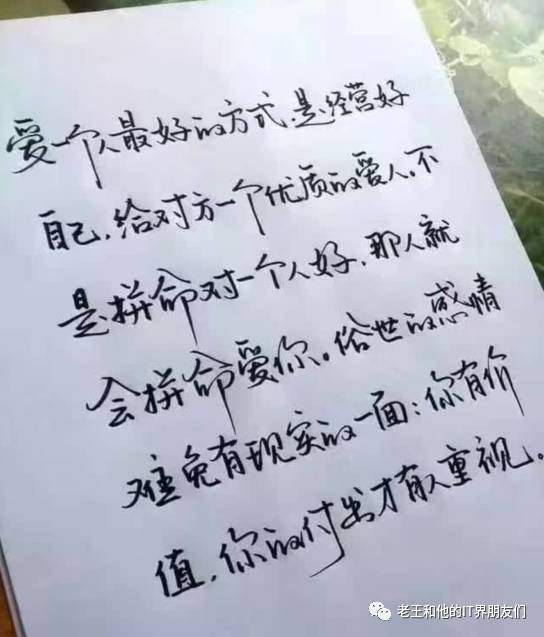 爱一个人最好的方式，是经营好
自己，给对方一个优质的爱人。不
是拼命对一个人好，那人就
会拼命爱你。俗世的感情
难免有现实的一面：你有价
值，你的付出才有人重视。
老王和他的IT界朋友们